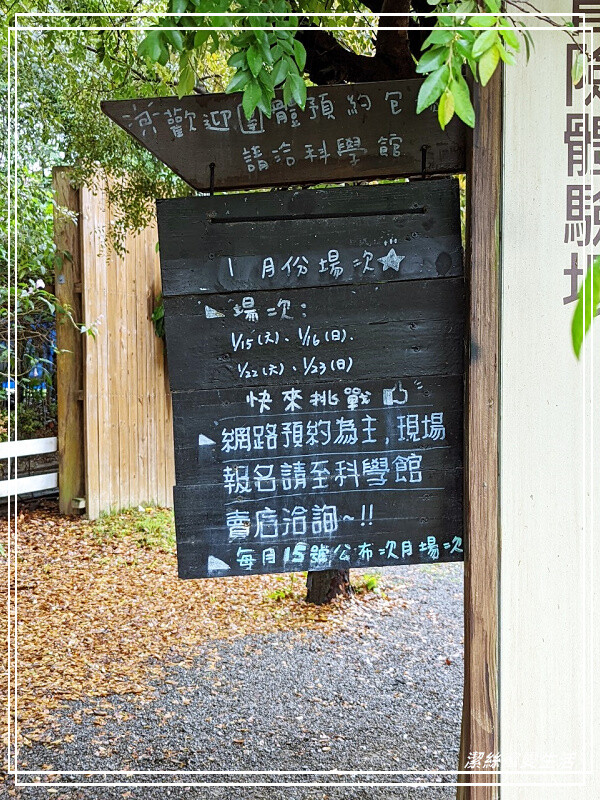 歡迎團體預約包
請洽科學館
1月份場次
場次:
1/15(六)、1/16(日).
1/22(六)、1/23(日)
快來挑戰
網路預約為主,現場
報名請至科學館
賣店洽詢~!!
每月15號公布次月場次
險體驗場
潔絲
生活